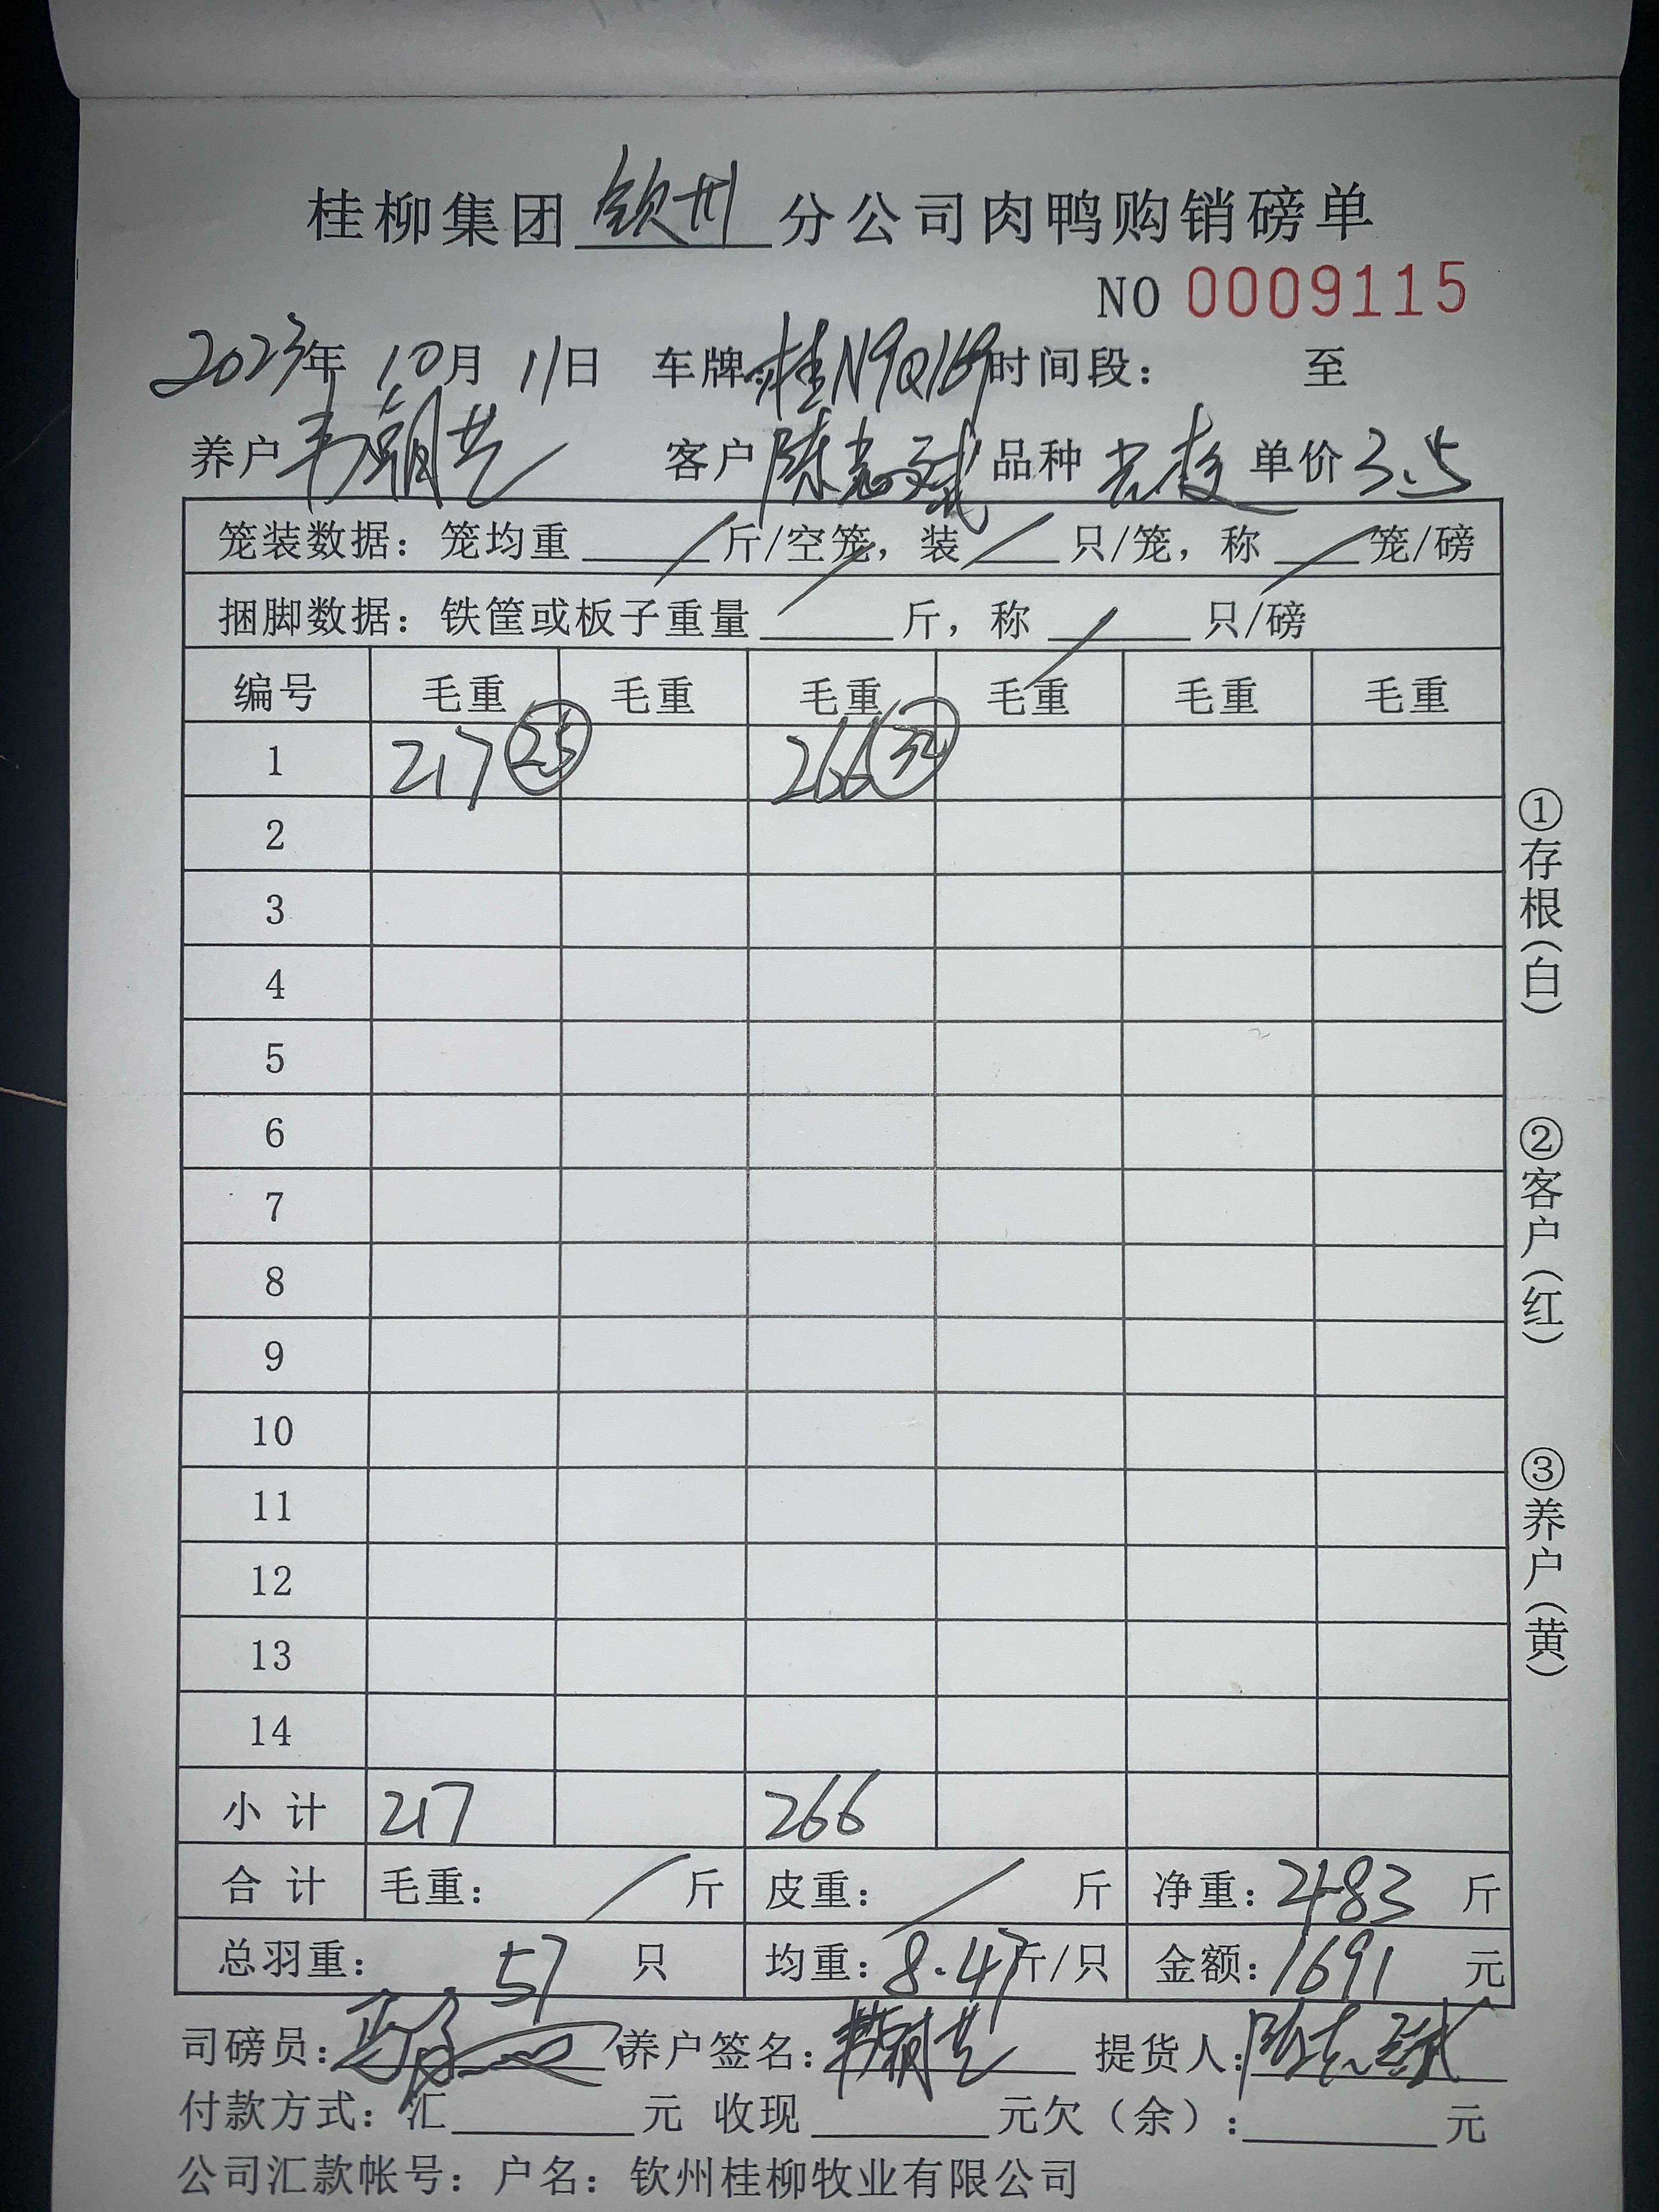 桂柳集团钦州分公司肉鸭购销磅单
NO 0009115
2023年 10月 11日 车牌:桂N9Q169时间段: 至
养户韦朝艺 客户陈志球 品种 单价3.5
笼装数据:笼均重 / 斤/空笼,装 / 只/笼,称 / 笼/磅
捆脚数据:铁筐或板子重量 / 斤,称 / 只/磅
编号 毛重 毛重 毛重 毛重 毛重 毛重
1 217 25 266 32
2
3
4
5
6
7
8
9
10
11
12
13
14
小计 217 266
合计 毛重: / 斤 皮重: / 斤 净重:2483 斤
总羽重: 57 只 均重:8.47斤/只 金额:1691 元
司磅员: 养户签名:韦朝艺 提货人:陈志球
付款方式:汇 元 收现 元欠(余): 元
公司汇款帐号:户名:钦州桂柳牧业有限公司
①存根(白)
②客户(红)
③养户(黄)